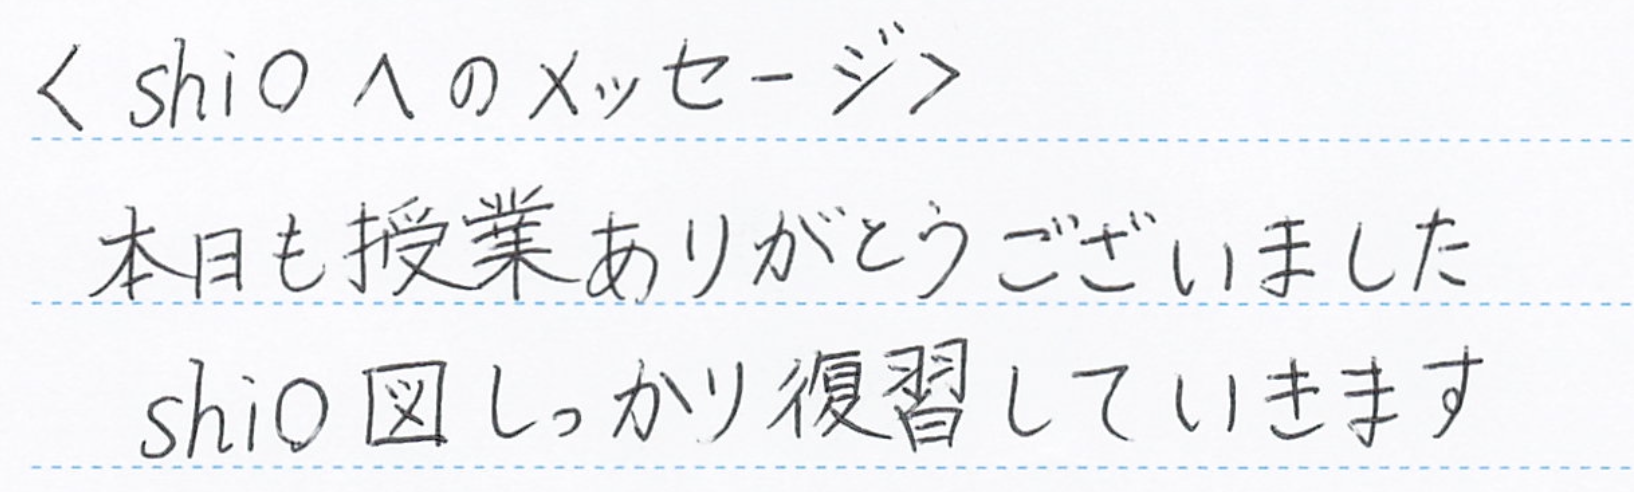 <shiOへのメッセージ>
本日も授業ありがとうございました
shiO図しっかり復習していきます